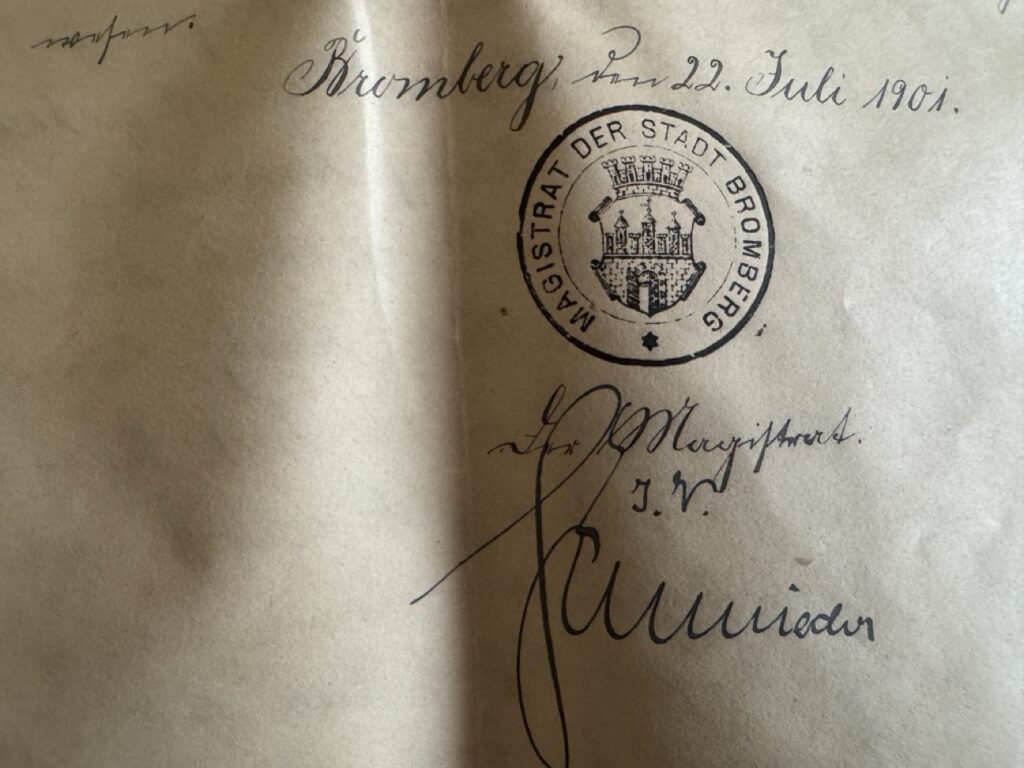 wesen.
Bromberg, den 22. Juli 1901.
MAGISTRAT DER STADT BROMBERG
Der Magistrat.
I. V.
Schmieder